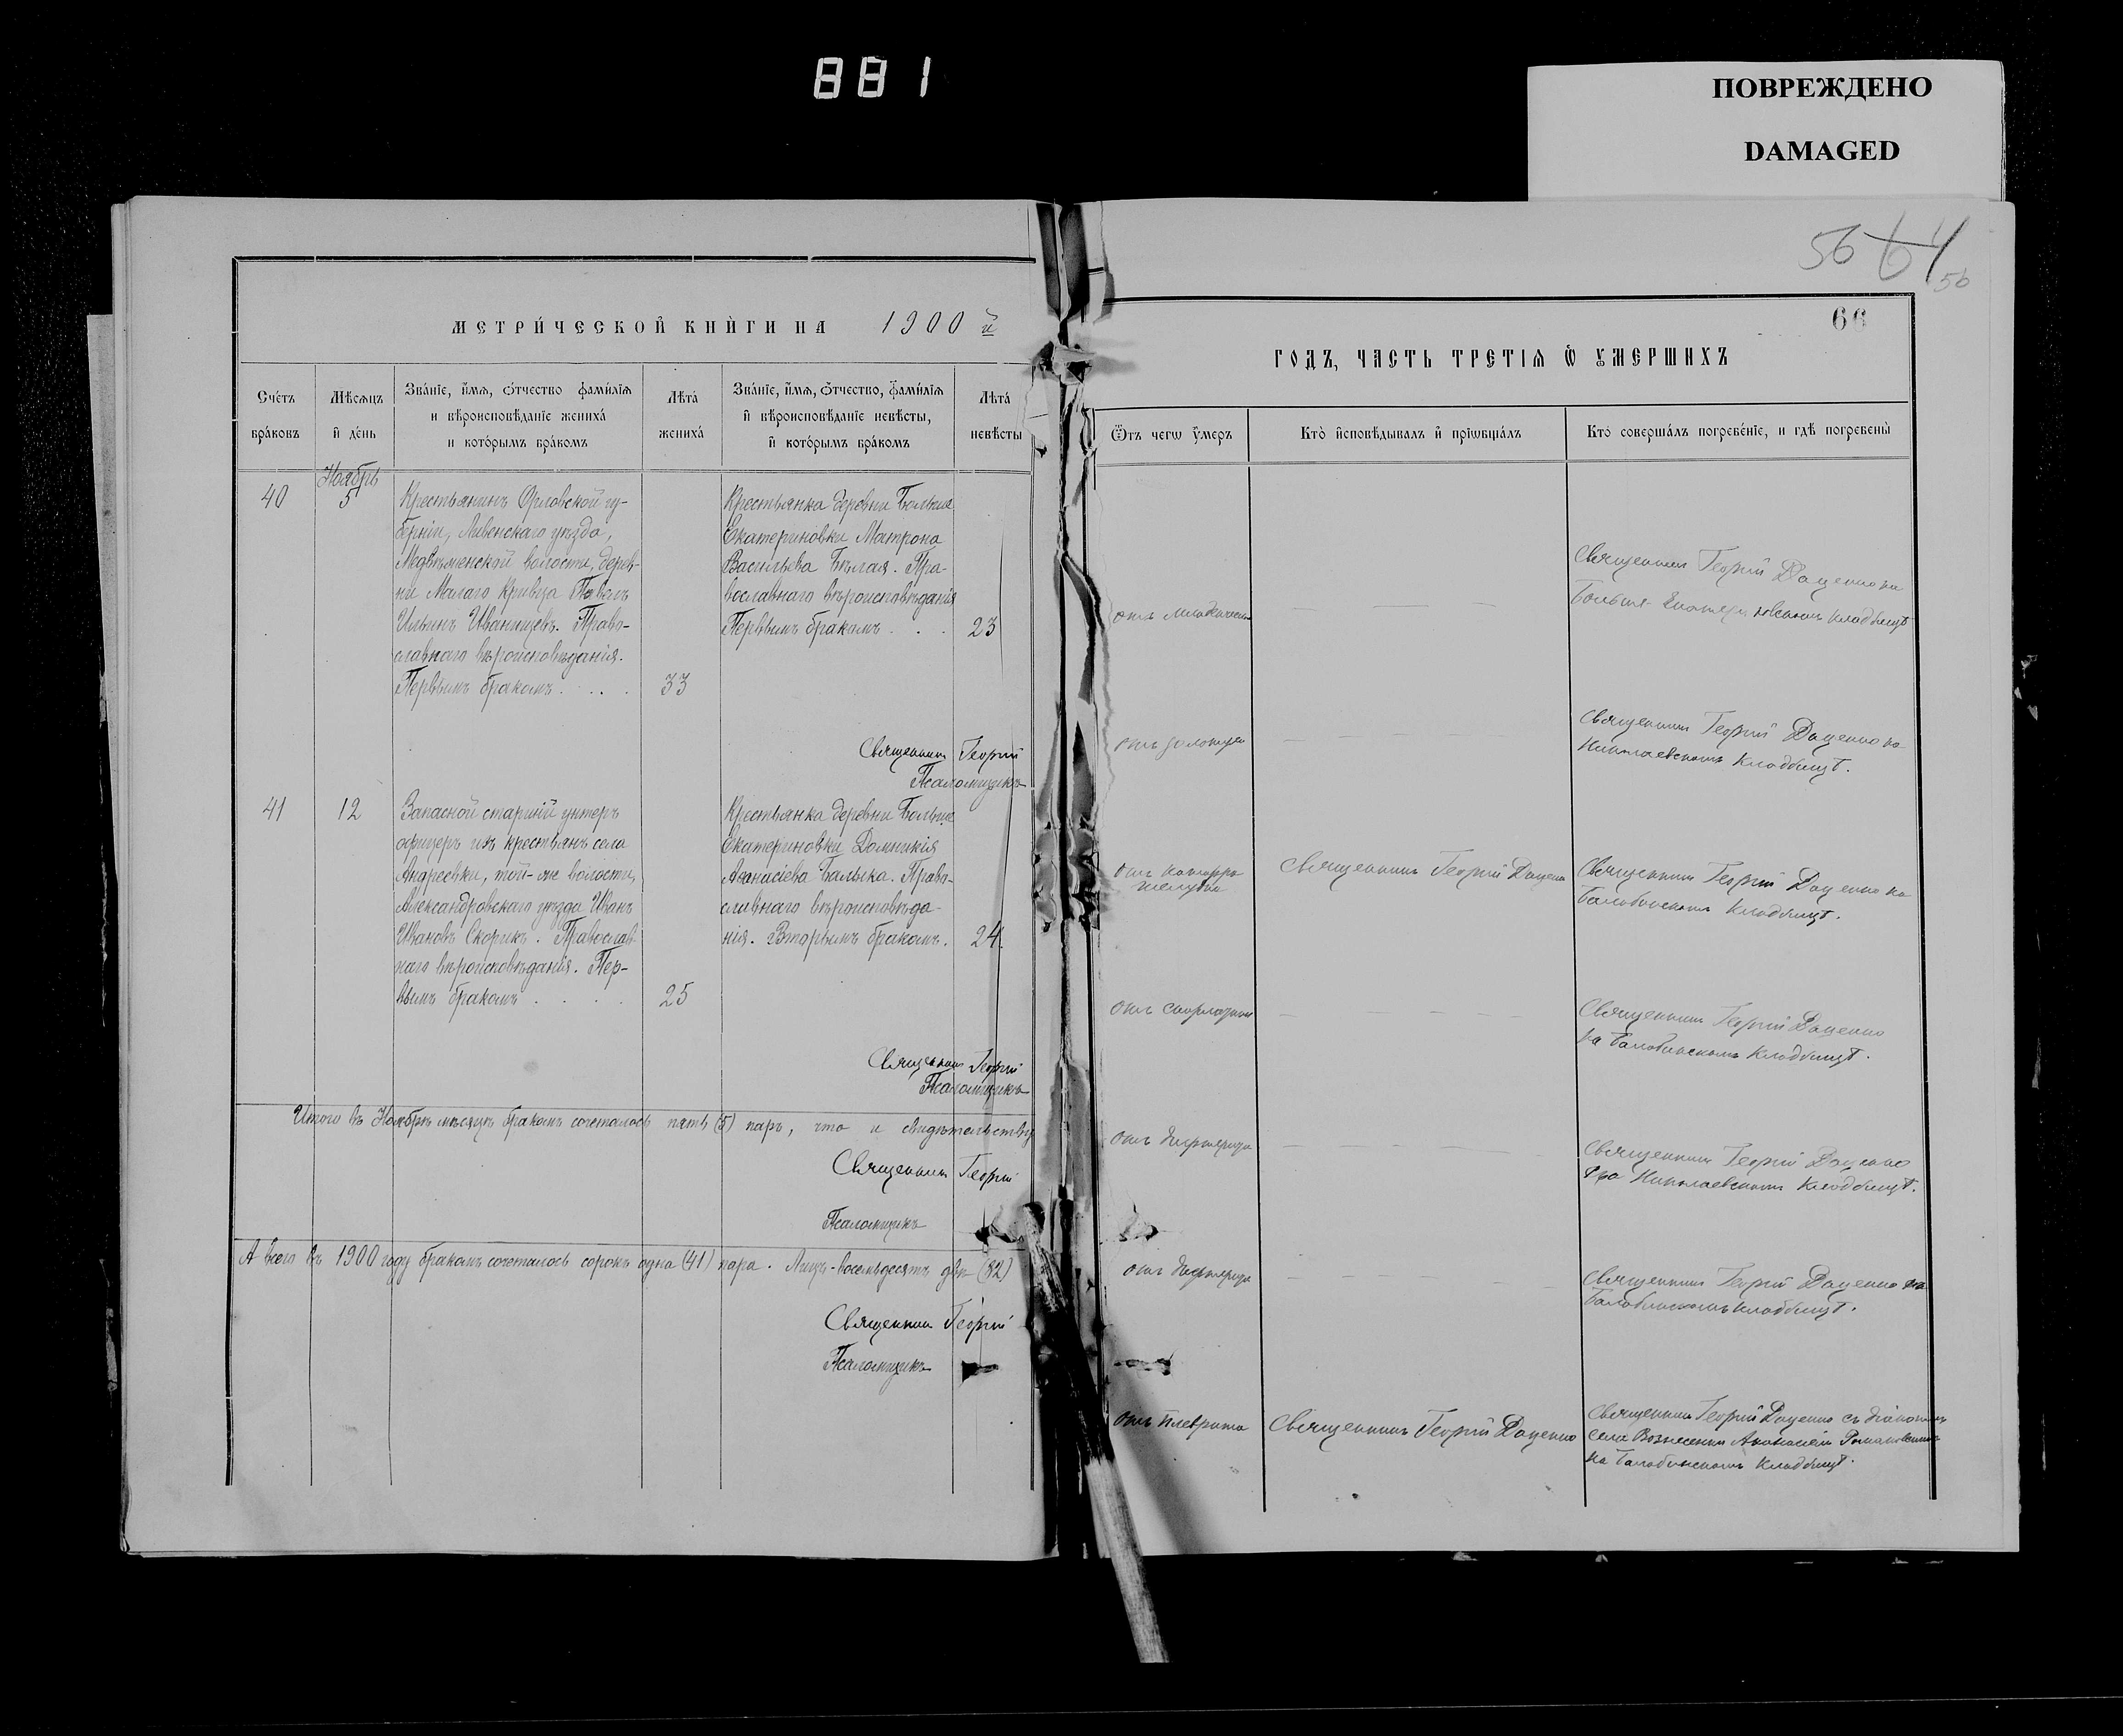 881
ПОВРЕЖДЕНО
DAMAGED
МЕТРИ́ЧЕСКОЙ КНИ́ГИ НА 1900 й
Сче́тъ бра́ковъ
Мѣ́сѧцъ и҆ де́нь
Зва́нїе, и҆́мѧ, ѻ҆́тчество фами́лїѧ
и вѣроисповѣ́данїе жениха́
и кото́рымъ бра́комъ
Лѣта̀ жениха́
Зва́нїе, и҆́мѧ, ѻ҆́тчество, фами́лїѧ
и҆ вѣроисповѣ́данїе невѣ́сты,
и҆ кото́рымъ бра́комъ
Лѣта̀ невѣ́сты
Ноябрь
40
5
Крестьянинъ Орловской гу-
берніи, Ливенскаго уѣзда,
волости, дерев-
ни Малаго Кривца Павелъ
Ильинъ Иванищевъ. Право-
славнаго вѣроисповѣданія.
Первымъ бракомъ . . . .
33
Крестьянка деревни Больше
Екатериновки Матрона
Васильева Бѣлая. Пра-
вославнаго вѣроисповѣданія
Первымъ бракомъ . . .
23
Священник Георгій
Псаломщикъ
41
12
Запасной старшій унтеръ
офицеръ изъ крестьянъ села
Андреевки, той-же волости,
Александровскаго уѣзда Иванъ
Ивановъ Скорикъ. Православ-
наго вѣроисповѣданія. Пер-
вымъ бракомъ . . . .
25
Крестьянка деревни Больше
Екатериновки Домникія
Аѳанасіева Балыка. Право-
славнаго вѣроисповѣда-
нія. Вторымъ бракомъ.
24.
Священник Георгій
Псаломщикъ
Итого въ Ноябрѣ мѣсяцѣ бракомъ сочеталось пять (5) паръ, что и свидѣтельству
Священник Георгій
Псаломщикъ
А всего въ 1900 году бракомъ сочеталось сорокъ одна (41) пара. Лицъ-восемьдесятъ два (82)
Священник Георгій
Псаломщикъ
56 64
56
66
ГОДЪ, ЧАСТЬ ТРЕТІѦ Ѿ ОУМЕРШИХЪ
Ѿтъ чегѡ оу҆́меръ
Кто̀ и҆сповѣ́дывалъ и҆ прїѡбща́лъ
Кто̀ соверша́лъ погребе́нїе, и гдѣ̀ погребены̀
отъ
Священник Георгій Доценко на
Больше-Екатериновскомъ кладбищѣ
отъ золотухи
Священник Георгій Доценко на
Николаевскомъ Кладбищѣ.
отъ катарра
желудка
Священникъ Георгій Доценко
Священник Георгій Доценко на
Балабинскомъ Кладбищѣ.
отъ скарлатины
Священник Георгій Доценко
на Балабинскомъ Кладбищѣ.
отъ дифтерита
Священник Георгій Доценко
на Николаевскомъ Кладбищѣ.
отъ дифтерита
Священник Георгій Доценко на
Балабинскомъ кладбищѣ.
отъ плеврита
Священникъ Георгій Доценко
Священник Георгій Доценко съ діакономъ
села Вознесенки
на Балабинскомъ Кладбищѣ.